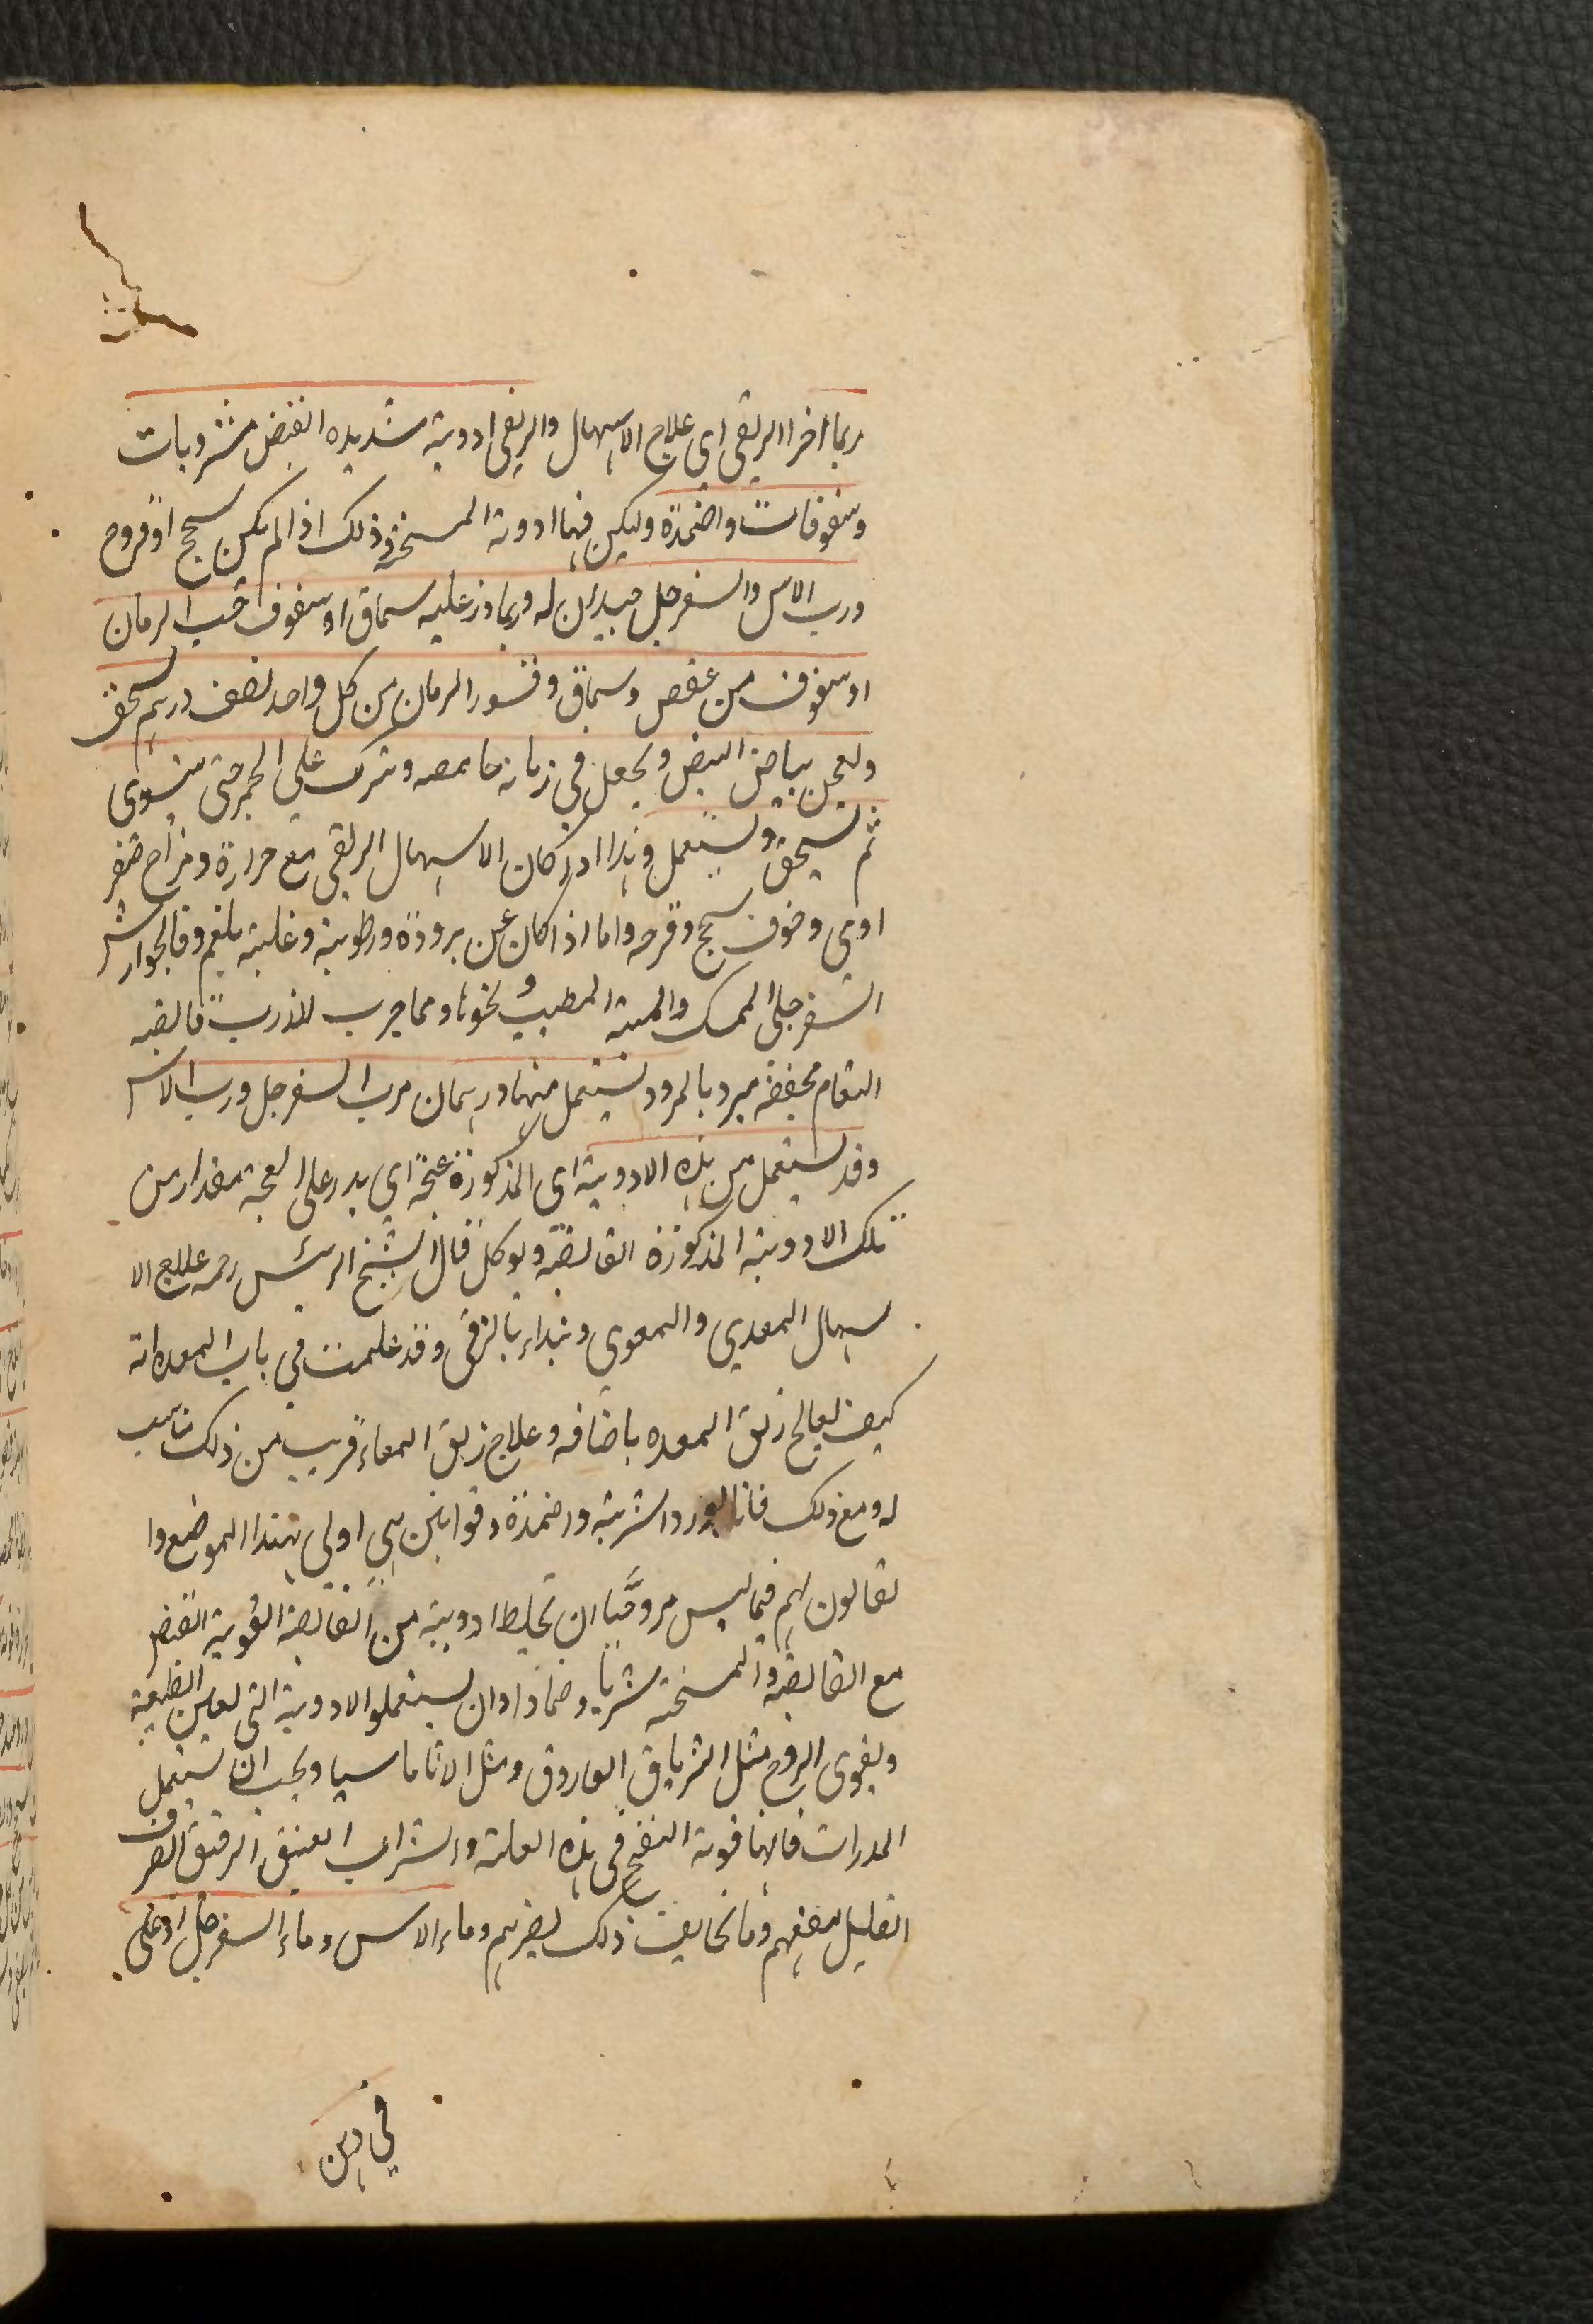 ربما اخر الزلقی ای علاج الاسهال والزلقی ادویة شدیده القبض مشروبات
وسفوفات واضمدة ولیکن فیها ادویة المسخنة وذلک اذا لم یکن سحج او قروح
ورب الاس والسفرجل جیدان له وربما ذر علیه سماق او سفوف حب الرمان
او سفوف من عفص وسماق وقشور الرمان من کل واحد نصف درهم یسحق
ویعجن ببیاض البیض ویجعل فی رمانة حامضه ویترک علی الجمر حتی یشوی
ثم یسحق ویستعمل وهذا اذا کان الاسهال الزلقی مع حرارة ومزاج صفر
اوی وخوف سحج وقرحه واما اذا کان عن برودة ورطوبة وغلبة بلغم فالجوارش
السفرجلی الممسک والمیبة المطیب ونحوها ومما جرب للذرب قانصه
النعام مجففة مبرد بالمبرد یستعمل منها درهمان برب السفرجل ورب الاس
وقد یستعمل من هذه الادویة ای المذکورة عجة ای یذر علی العجة مقدار من
تلک الادویة المذکورة القابضة ویوکل قال الشیخ الرئیس رحمه علاج الا
سهال المعدی والمعوی ونبداء بالزلقی وقد علمت فی باب المعده انه
کیف یعالج زلق المعده باصنافه وعلاج زلق المعاء قریب من ذلک مناسب
له ومع ذلک فانا نورد اشربة واضمدة وقوانین هی اولی بهذا الموضع وا
لقانون لهم فیما لیس مروحیا ان تخلط ادویة من القابضة القویة القبض
مع القابضة والمسخنة شربا وضمادا وان یستعملوا الادویة التی تعین الطبیعة
ویقوی الروح مثل التریاق الفاروق ومثل الاثاناسیا ویجب ان یستعمل
المدرات فانها قویة النفع فی هذه العلة والشراب العتیق الرقیق الصرف
القلیل ینفعهم وما یخالف ذلک یضرهم وماء الاس وماء السفرجل اذ غلی
فی دن